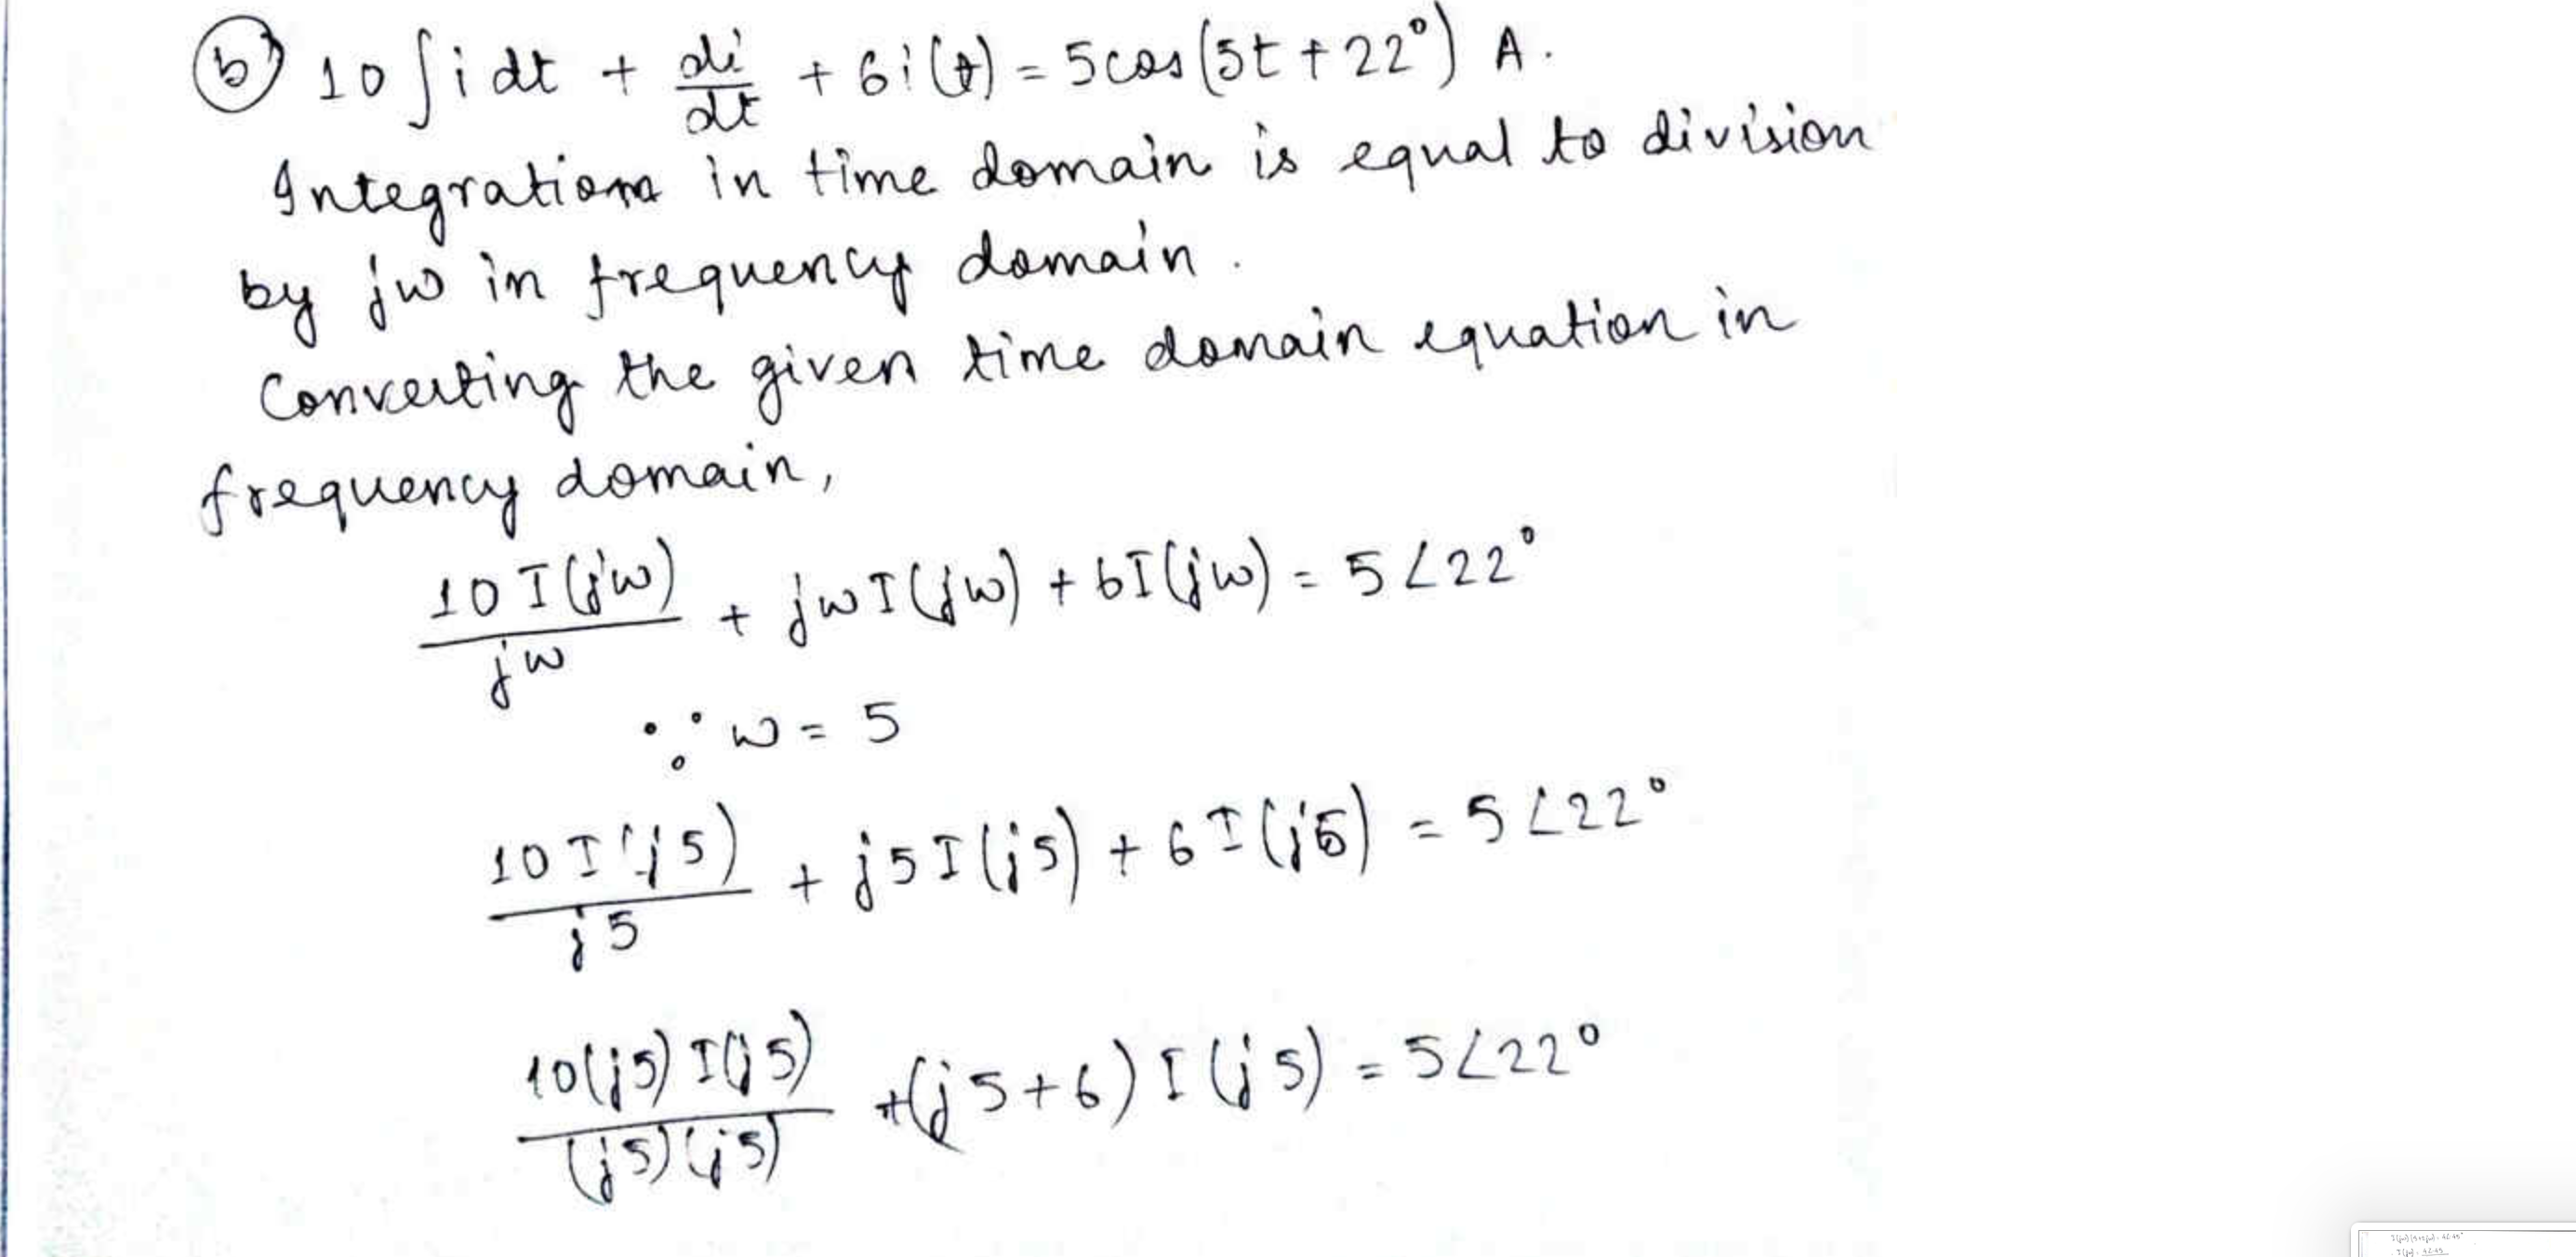 b) 10 ∫ i dt + di/dt + 6i(t) = 5cos(5t + 22°) A.
Integration in time domain is equal to division
by jw in frequency domain.
Converting the given time domain equation in
frequency domain,
10 I(jw)/jw + jwI(jw) + 6I(jw) = 5∠22°
∵ w = 5
10 I(j5)/j5 + j5I(j5) + 6I(j5) = 5∠22°
10(j5) I(j5)/(j5)(j5) +(j5+6) I(j5) = 5∠22°